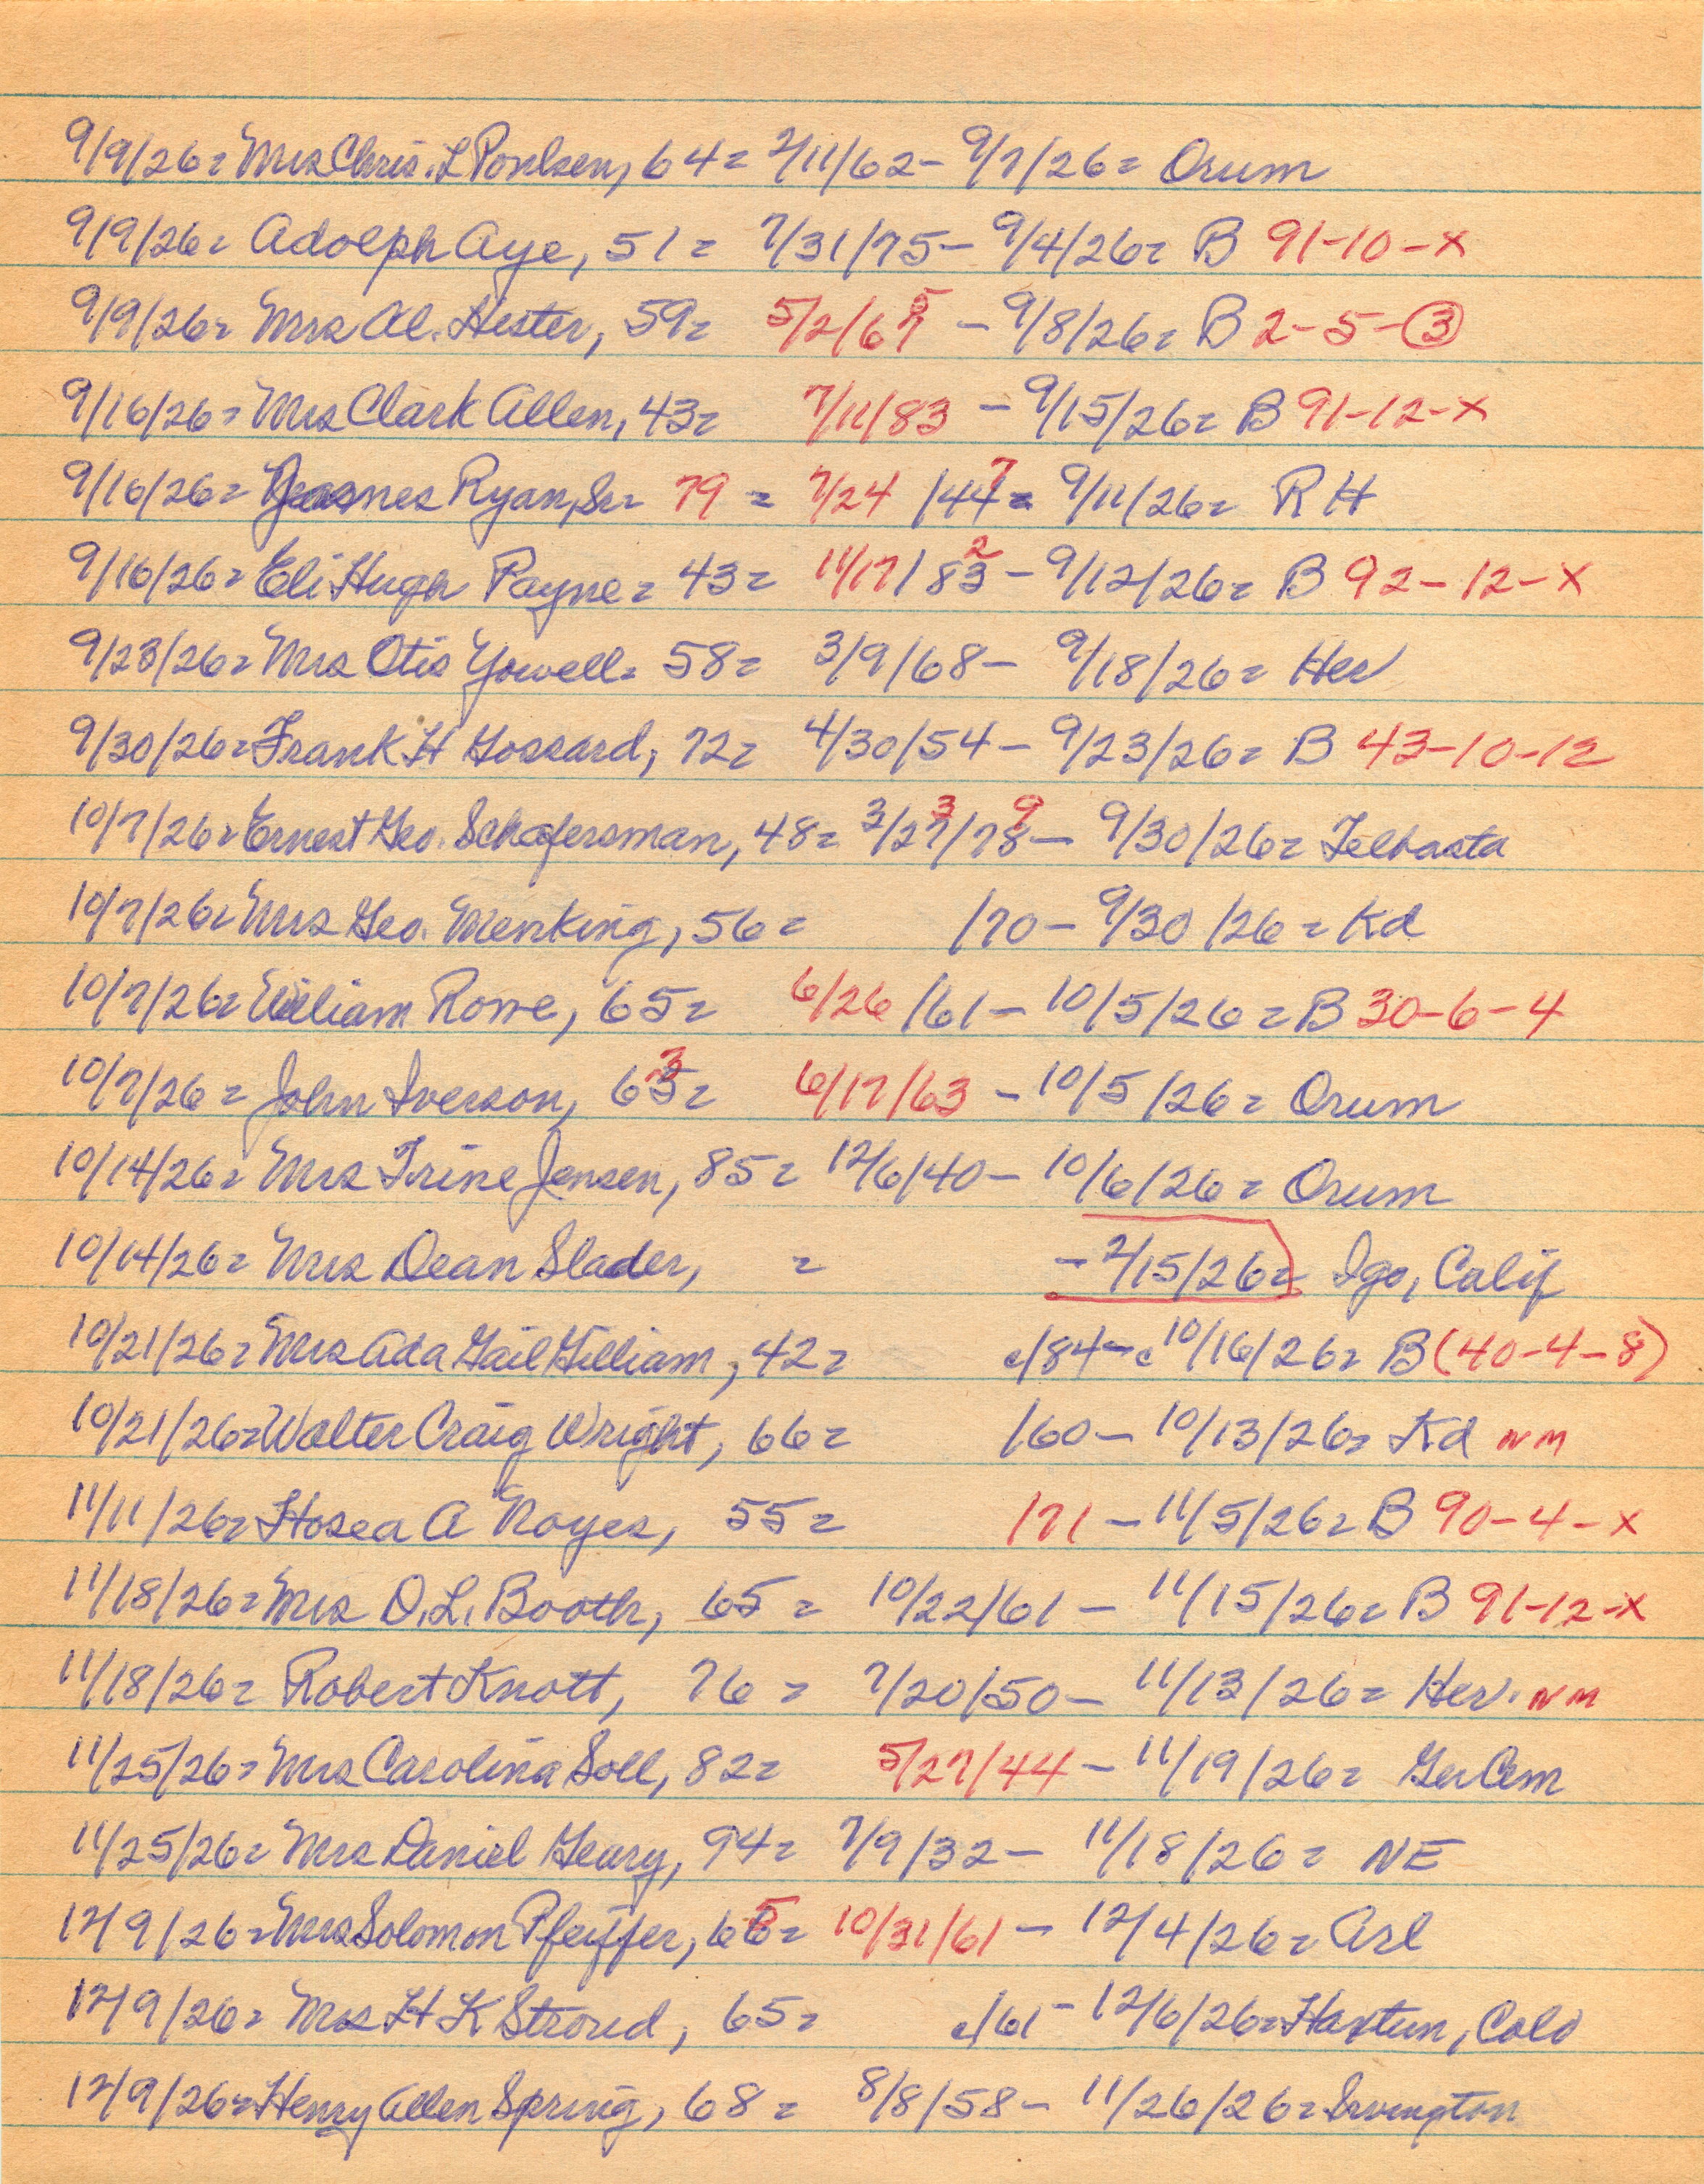 9/9/26= Mrs Chris. L Poulsen, 64= 2/11/62- 9/7/26= Orum
9/9/26= Adolph Aye, 51= 7/31/75- 9/4/26= B 91-10-X
9/9/26= Mrs Al. Hester, 59= 5/2/67 5 - 9/8/26= B 2-5-3
9/16/26= Mrs Clark Allen, 43= 7/11/83 - 9/15/26= B 91-12-X
9/16/26= James Ryan, Sr= 79 = 7/24 /44 7 = 9/11/26= R H
9/16/26= Eli Hugh Payne= 43= 11/17/83 2 - 9/12/26= B 92-12-X
9/23/26= Mrs Otis Yowell= 58= 3/9/68- 9/18/26= Her
9/30/26= Frank H Gossard, 72= 4/30/54- 9/23/26= B 43-10-12
10/7/26= Ernest Geo. Schafersman, 48= 3/27 3/78 9- 9/30/26= Telbasta
10/7/26= Mrs Geo. Menking, 56= /70- 9/30/26= Kd
10/7/26= William Rowe, 65= 6/26/61- 10/5/26= B 30-6-4
10/7/26= John Iverson, 65 3= 6/17/63 - 10/5/26= Orum
10/14/26= Mrs Trine Jensen, 85= 12/6/40- 10/6/26= Orum
10/14/26= Mrs Dean Slader, = - 2/15/26= Igo, Calif
10/21/26= Mrs Ada Gail Gilliam, 42= c/84-c 10/16/26= B (40-4-8)
10/21/26= Walter Craig Wright, 66= /60- 10/13/26= Kd NM
11/11/26= Hosea A Noyes, 55= /71 - 11/5/26= B 90-4-X
11/18/26= Mrs D. L. Booth, 65= 10/22/61- 11/15/26= B 91-12-X
11/18/26= Robert Knott, 76= 7/20/50- 11/13/26= Her. NM
11/25/26= Mrs Carolina Soll, 82= 5/27/44- 11/19/26= Ger Cem
11/25/26= Mrs Daniel Geary, 94= 7/9/32- 11/18/26= NE
12/9/26= Mrs Solomon Pfeiffer, 66 5= 10/31/61- 12/4/26= Arl
12/9/26= Mrs H K Stroud, 65= c/61- 12/6/26= Haxtun, Colo
12/9/26= Henry Allen Spring, 68= 8/8/58- 11/26/26= Irvington